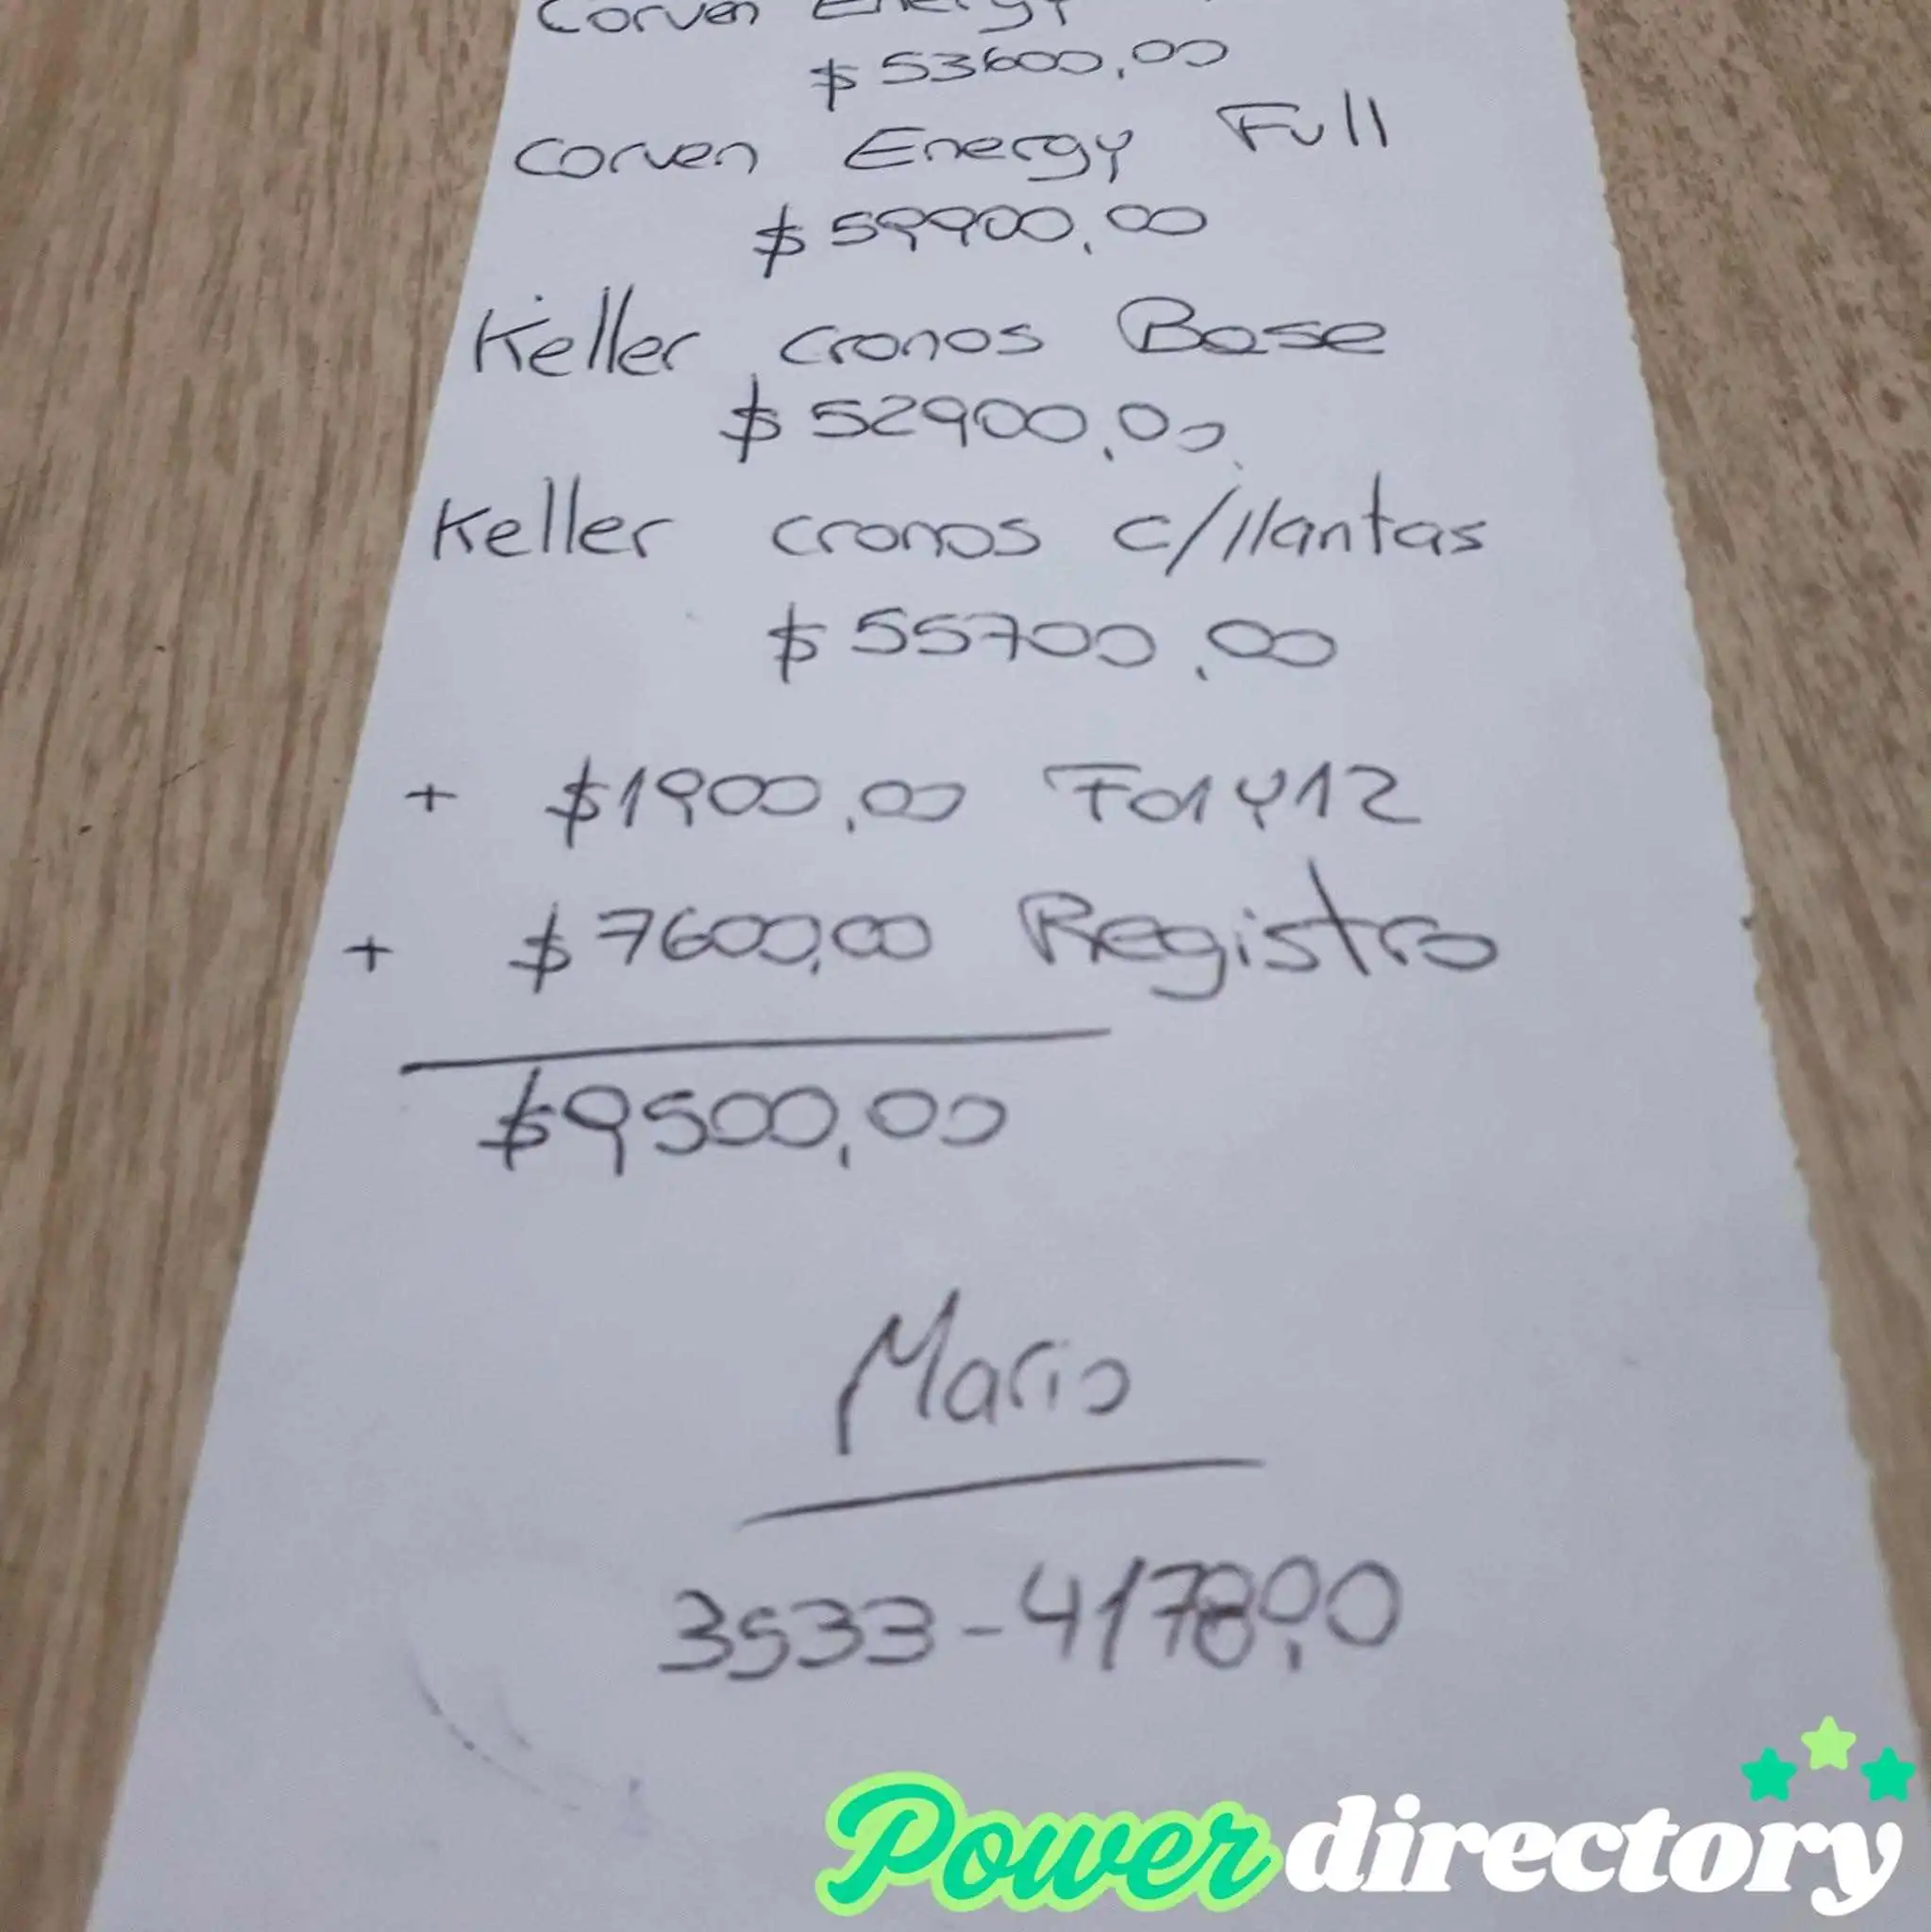 Corven Energy
$ 53600,00
Corven Energy Full
$ 59900,00
Keller cronos Base
$ 52900,00
Keller cronos c/llantas
$ 55700,00
+ $1900,00 F01Y12
+ $7600,00 Registro
$9500,00
Mario
3533-417890
Power directory